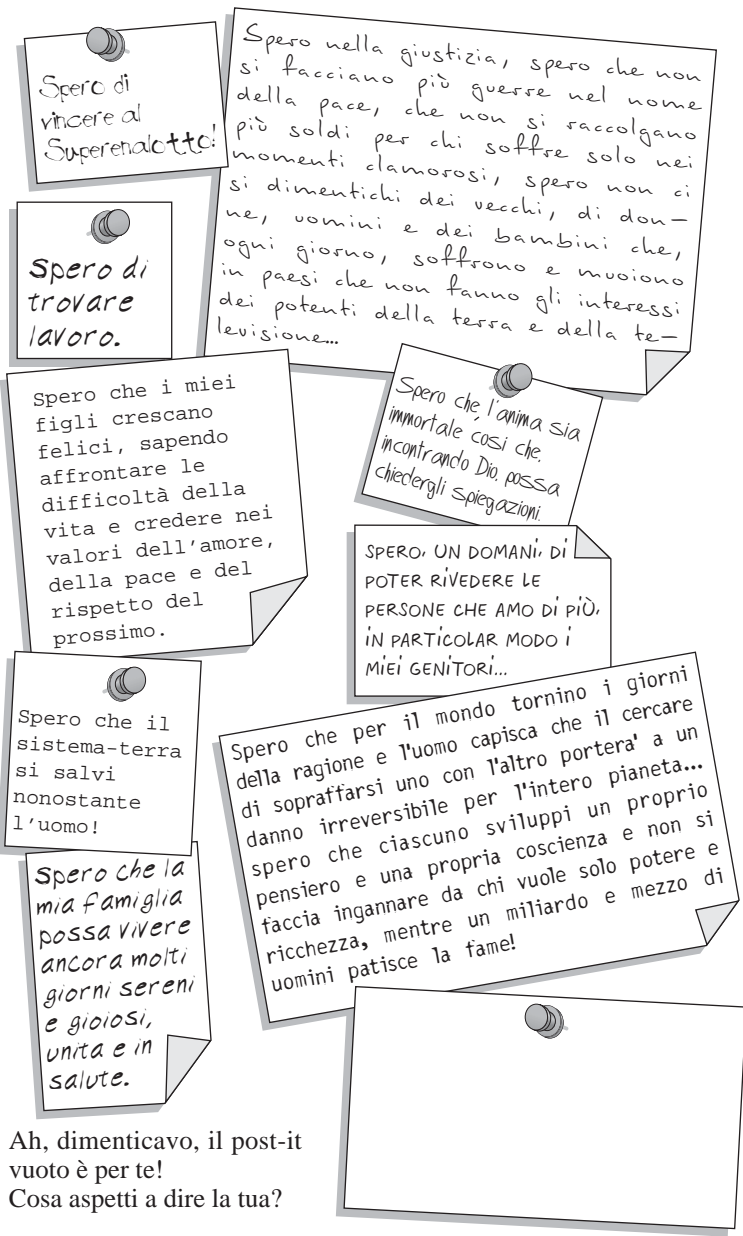 Spero di
vincere al
Superenalotto!
Spero nella giustizia, spero che non
si facciano più guerre nel nome
della pace, che non si raccolgano
più soldi per chi soffre solo nei
momenti clamorosi, spero non ci
si dimentichi dei vecchi, di don–
ne, uomini e dei bambini che,
ogni giorno, soffrono e muoiono
in paesi che non fanno gli interessi
dei potenti della terra e della te–
levisione...
Spero di
trovare
lavoro.
Spero che i miei
figli crescano
felici, sapendo
affrontare le
difficoltà della
vita e credere nei
valori dell'amore,
della pace e del
rispetto del
prossimo.
Spero che, l'anima sia
immortale così che,
incontrando Dio, possa
chiedergli spiegazioni.
SPERO, UN DOMANI, DI
POTER RIVEDERE LE
PERSONE CHE AMO DI PIÙ,
IN PARTICOLAR MODO I
MIEI GENITORI...
Spero che il
sistema-terra
si salvi
nonostante
l'uomo!
Spero che per il mondo tornino i giorni
della ragione e l'uomo capisca che il cercare
di sopraffarsi uno con l'altro portera' a un
danno irreversibile per l'intero pianeta...
spero che ciascuno sviluppi un proprio
pensiero e una propria coscienza e non si
faccia ingannare da chi vuole solo potere e
ricchezza, mentre un miliardo e mezzo di
uomini patisce la fame!
Spero che la
mia famiglia
possa vivere
ancora molti
giorni sereni
e gioiosi,
unita e in
salute.
Ah, dimenticavo, il post-it
vuoto è per te!
Cosa aspetti a dire la tua?